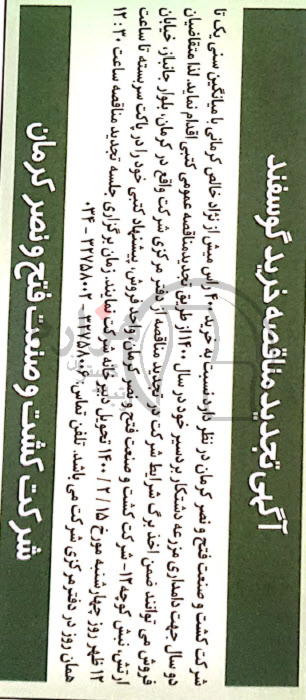 آگهی تجدید مناقصه خرید گوسفند
شرکت کشت و صنعت فتح و نصر کرمان در نظر دارد نسبت به خرید ۴۰۰ راس میش از نژاد خالص کرمانی با میانگین سنی یک تا
دو سال جهت دامداری مزرعه دشتکار بردسیر خود در سال ۱۴۰۰ از طریق تجدیدمناقصه عمومی کتبی اقدام نماید. لذا متقاضیان
فروش می توانند ضمن اخذ برگ شرایط شرکت در تجدید مناقصه از دفتر مرکزی شرکت واقع در کرمان، بلوار جانباز، خیابان
ارتش، نبش کوچه۱۲- شرکت کشت و صنعت فتح و نصر کرمان، واحد فروش، پیشنهاد کتبی خود را در پاکت سربسته تا ساعت
۱۲ ظهر روز چهارشنبه مورخ ۱۵ / ۲ / ۱۴۰۰ تحویل دبیرخانه شرکت نمایند. زمان برگزاری جلسه تجدید مناقصه ساعت ۳۰ : ۱۲
همان روز در دفترمرکزی شرکت می باشد. تلفن تماس: ۳۲۷۵۸۰۰۶ - ۳۲۷۵۸۰۰۲ - ۰۳۴
شرکت کشت و صنعت فتح و نصر کرمان